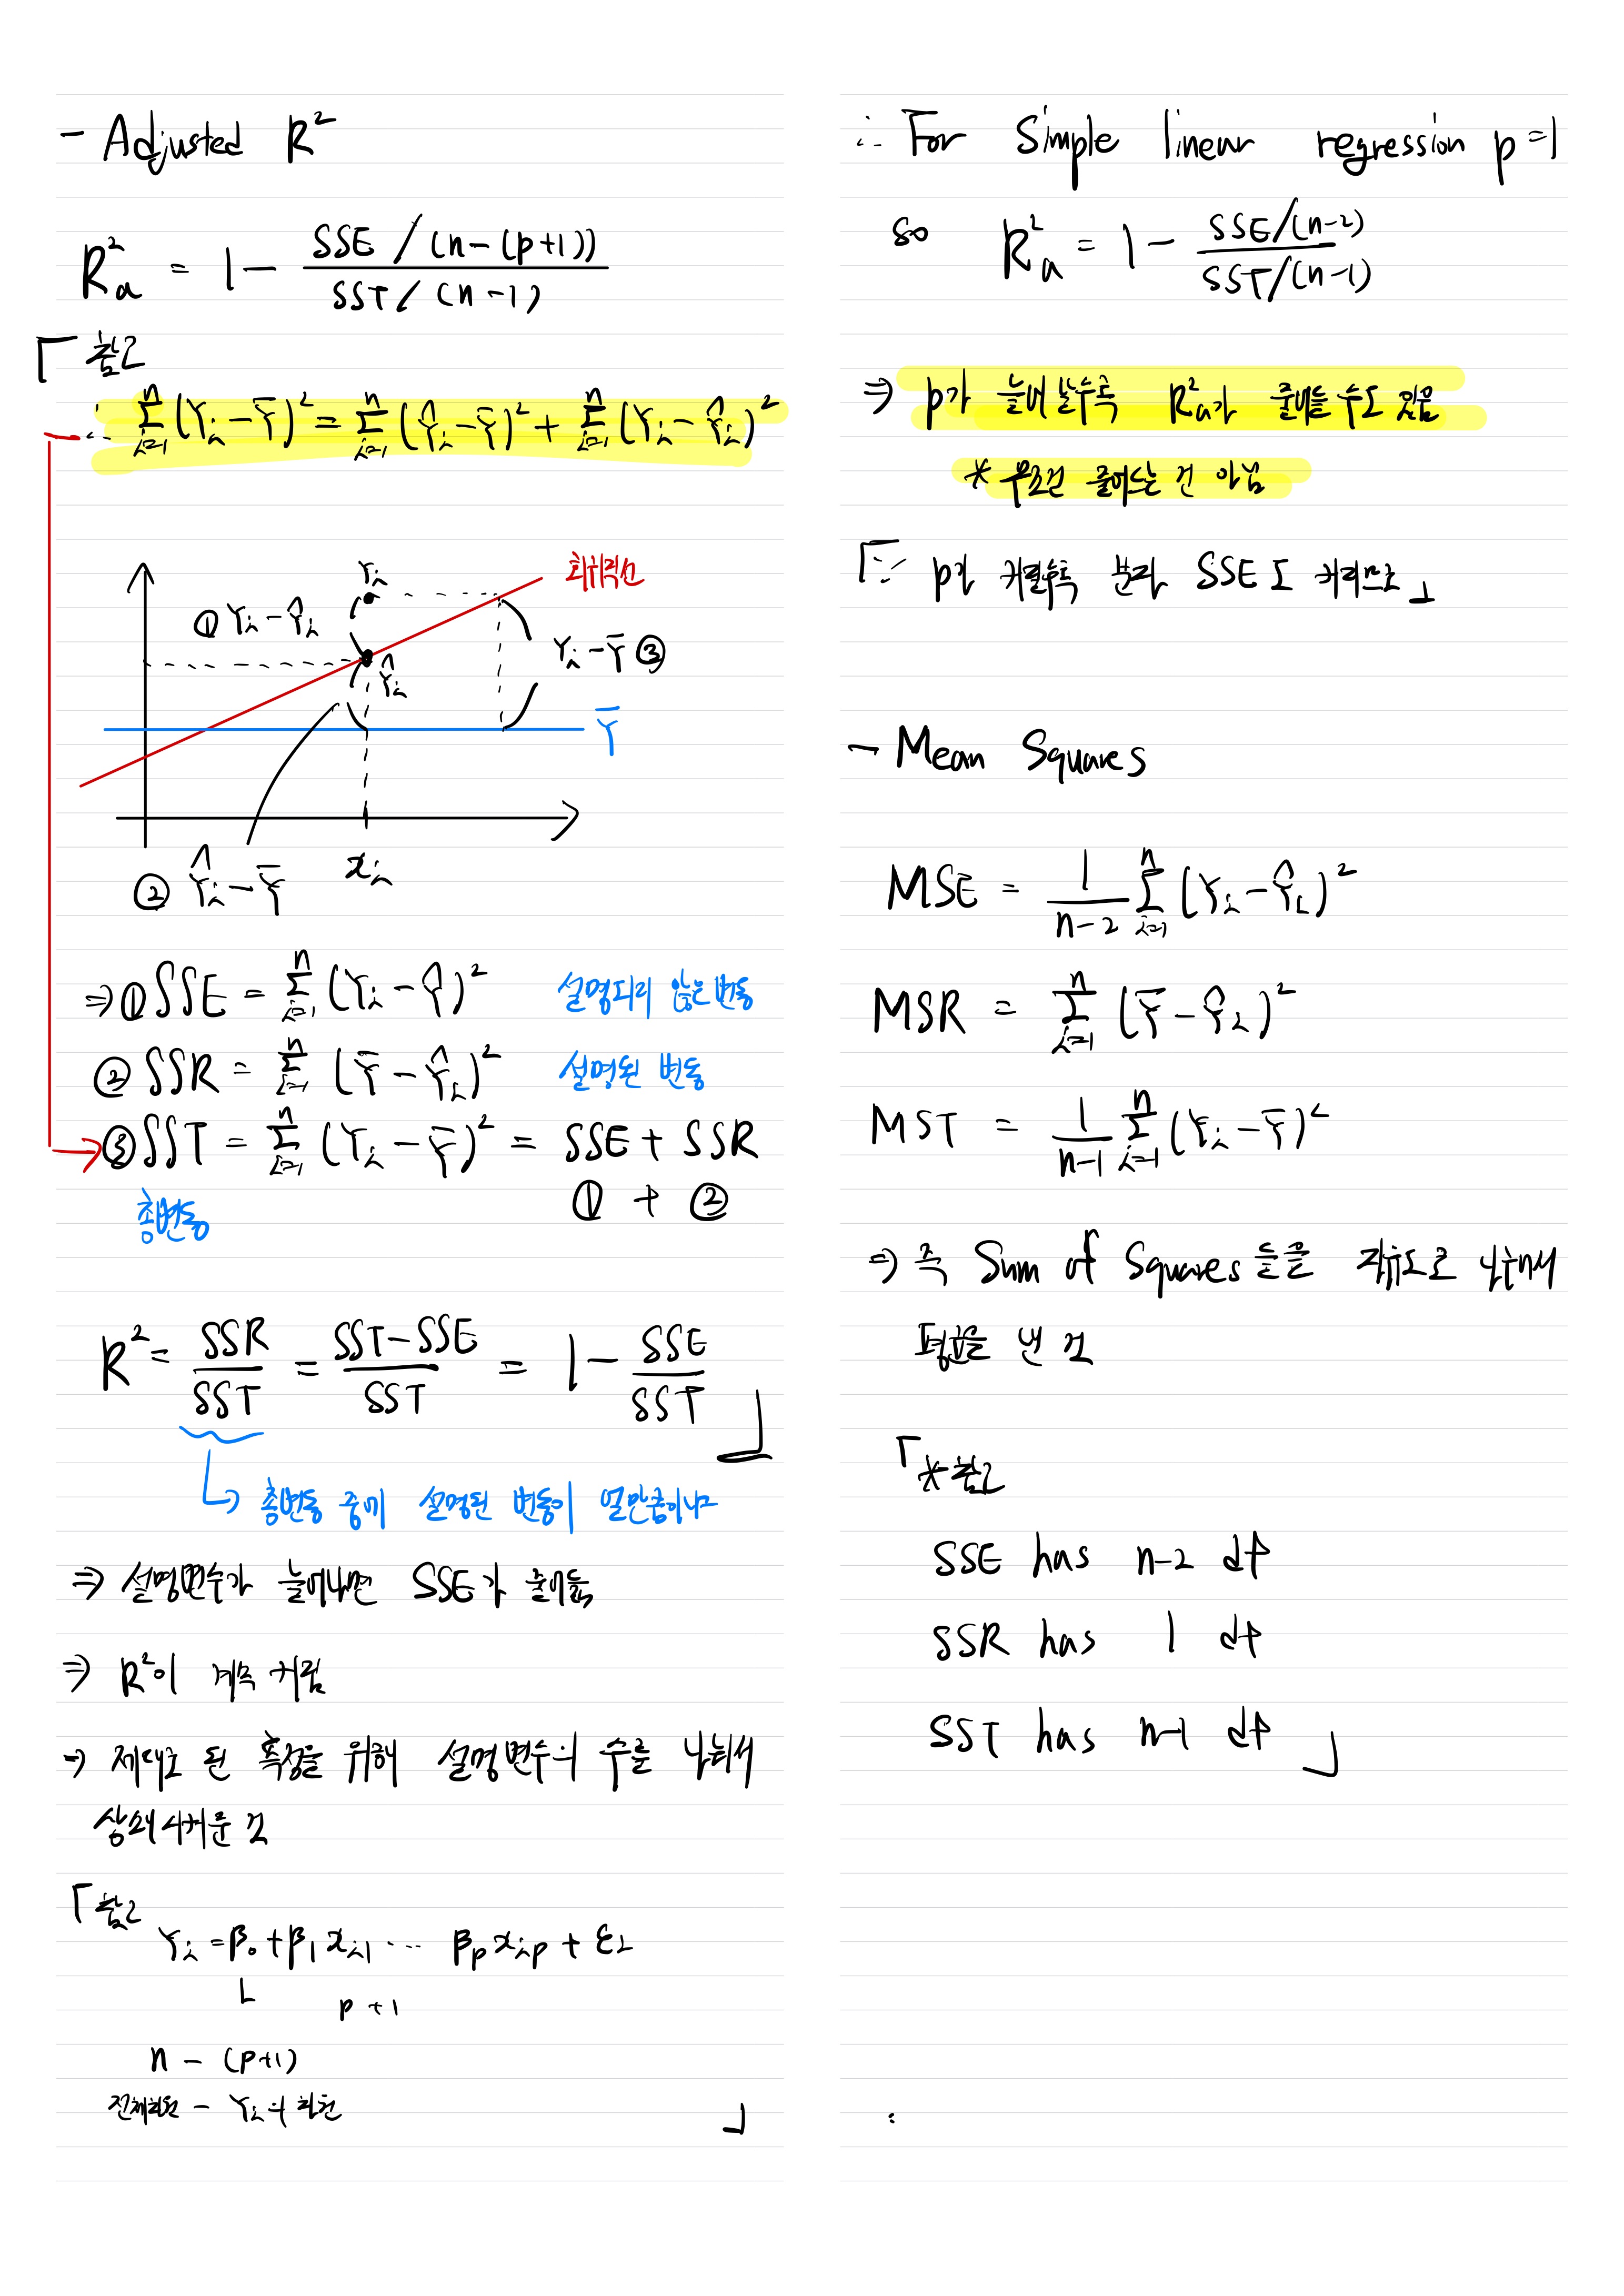 - Adjusted R²
R²ₐ = 1 - (SSE / (n-(p+1))) / (SST / (n-1))
「참고
∵ Σᵢ₌₁ⁿ (Yᵢ - Ȳ)² = Σᵢ₌₁ⁿ (Ŷᵢ - Ȳ)² + Σᵢ₌₁ⁿ (Yᵢ - Ŷᵢ)²
Yᵢ
회귀직선
① Yᵢ - Ŷᵢ
Yᵢ - Ȳ ③
Ŷᵢ
Ȳ
② Ŷᵢ - Ȳ
xᵢ
⇒ ① SSE = Σᵢ₌₁ⁿ (Yᵢ - Ŷ)² 설명되지 않은 변동
② SSR = Σᵢ₌₁ⁿ (Ȳ - Ŷᵢ)² 설명된 변동
③ SST = Σᵢ₌₁ⁿ (Yᵢ - Ȳ)² = SSE + SSR
총변동
① + ②
R² = SSR/SST = (SST-SSE)/SST = 1 - SSE/SST 」
↳ 총변동 중에 설명된 변동이 얼만큼이냐
⇒ 설명변수가 늘어나면 SSE가 줄어듦
⇒ R²이 계속 커짐
⇒ 제대로 된 측정을 위해 설명변수의 수를 나눠서
상쇄시켜준 것
「참고
Yᵢ = β₀ + β₁xᵢ₁ ... βₚxᵢₚ + εᵢ
p + 1
n - (p+1)
전체차원 - Yᵢ의 차원
」
∴ For Simple linear regression p=1
so R²ₐ = 1 - (SSE/(n-2)) / (SST/(n-1))
⇒ p가 늘어날수록 R²ₐ가 줄어들 수도 있음
* 무조건 줄어드는 건 아님
「∵ p가 커질수록 분자 SSE도 커지므로」
- Mean Squares
MSE = 1/(n-2) Σᵢ₌₁ⁿ (Yᵢ - Ŷᵢ)²
MSR = Σᵢ₌₁ⁿ (Ȳ - Ŷᵢ)²
MST = 1/(n-1) Σᵢ₌₁ⁿ (Yᵢ - Ȳ)²
⇒ 즉 Sum of Squares들을 자유도로 나눠서
평균을 낸 것
「* 참고
SSE has n-2 df
SSR has 1 df
SST has n-1 df 」